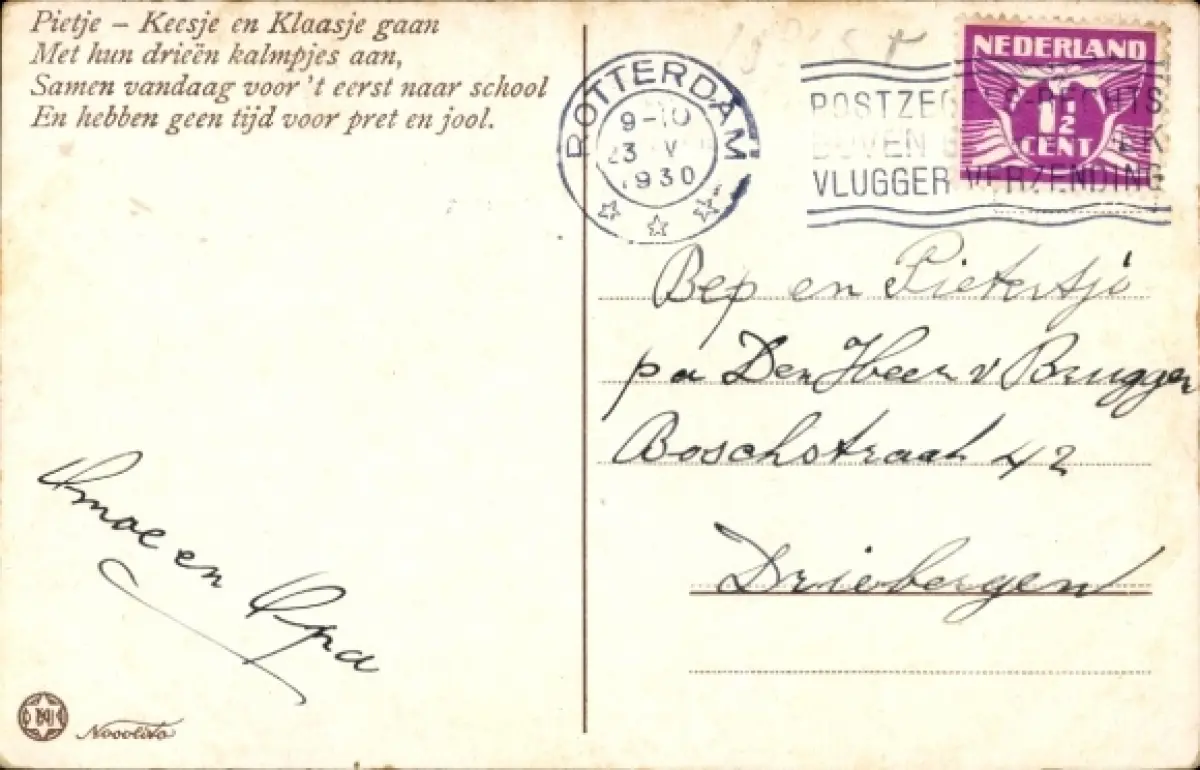 Pietje – Keesje en Klaasje gaan
Met hun drieën kalmpjes aan,
Samen vandaag voor 't eerst naar school
En hebben geen tijd voor pret en jool.
ROTTERDAM
9-10
23 V
1930
POSTZEGEL RECHTS
BOVEN
VLUGGER VERZENDING
NEDERLAND
1½
CENT
Bep en Pietertje
pa Den Heer v Brugger
Boschstraat 42
Driebergen
Omoe en Opa
Novolito